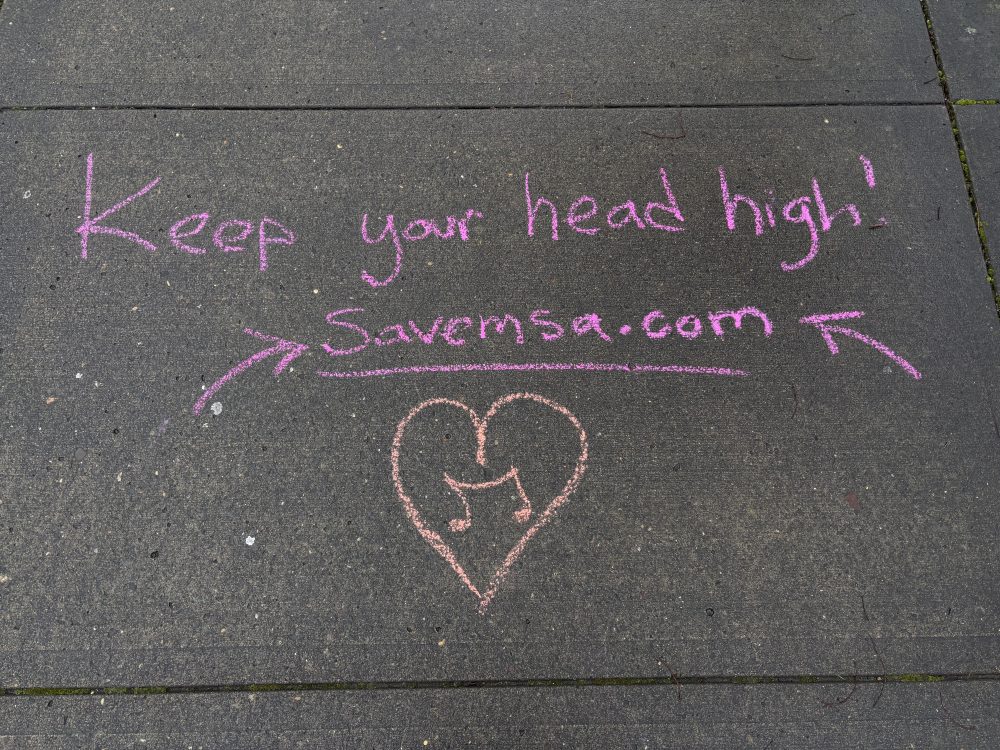 Keep your head high!
Savemsa.com